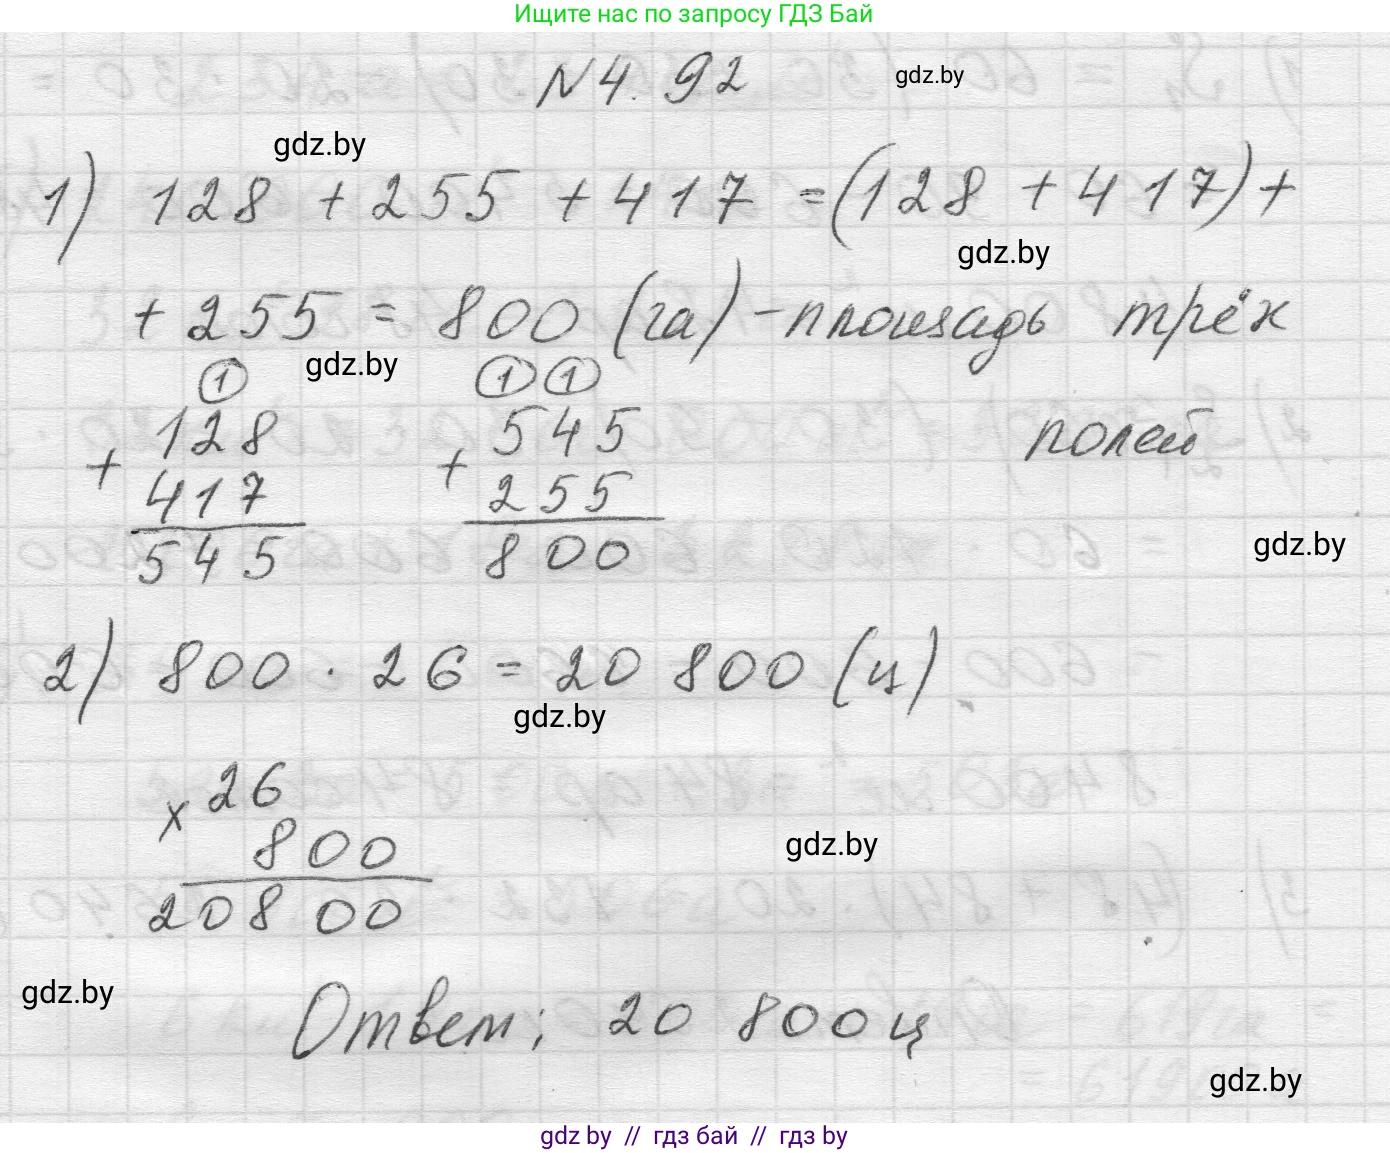 Ищите нас по запросу ГДЗ Бай
№ 4. 92
gdz.by
gdz.by
1) 128 + 255 + 417 = (128 + 417) +
gdz.by
+ 255 = 800 (га) - площадь трёх
gdz.by
полей
① ①①
128 545
+ +
417 255
545 800
gdz.by
2) 800 · 26 = 20 800 (ц)
gdz.by
× 26
800
gdz.by
20800
gdz.by
Ответ: 20 800 ц
gdz.by
gdz by // гдз бай // гдз by